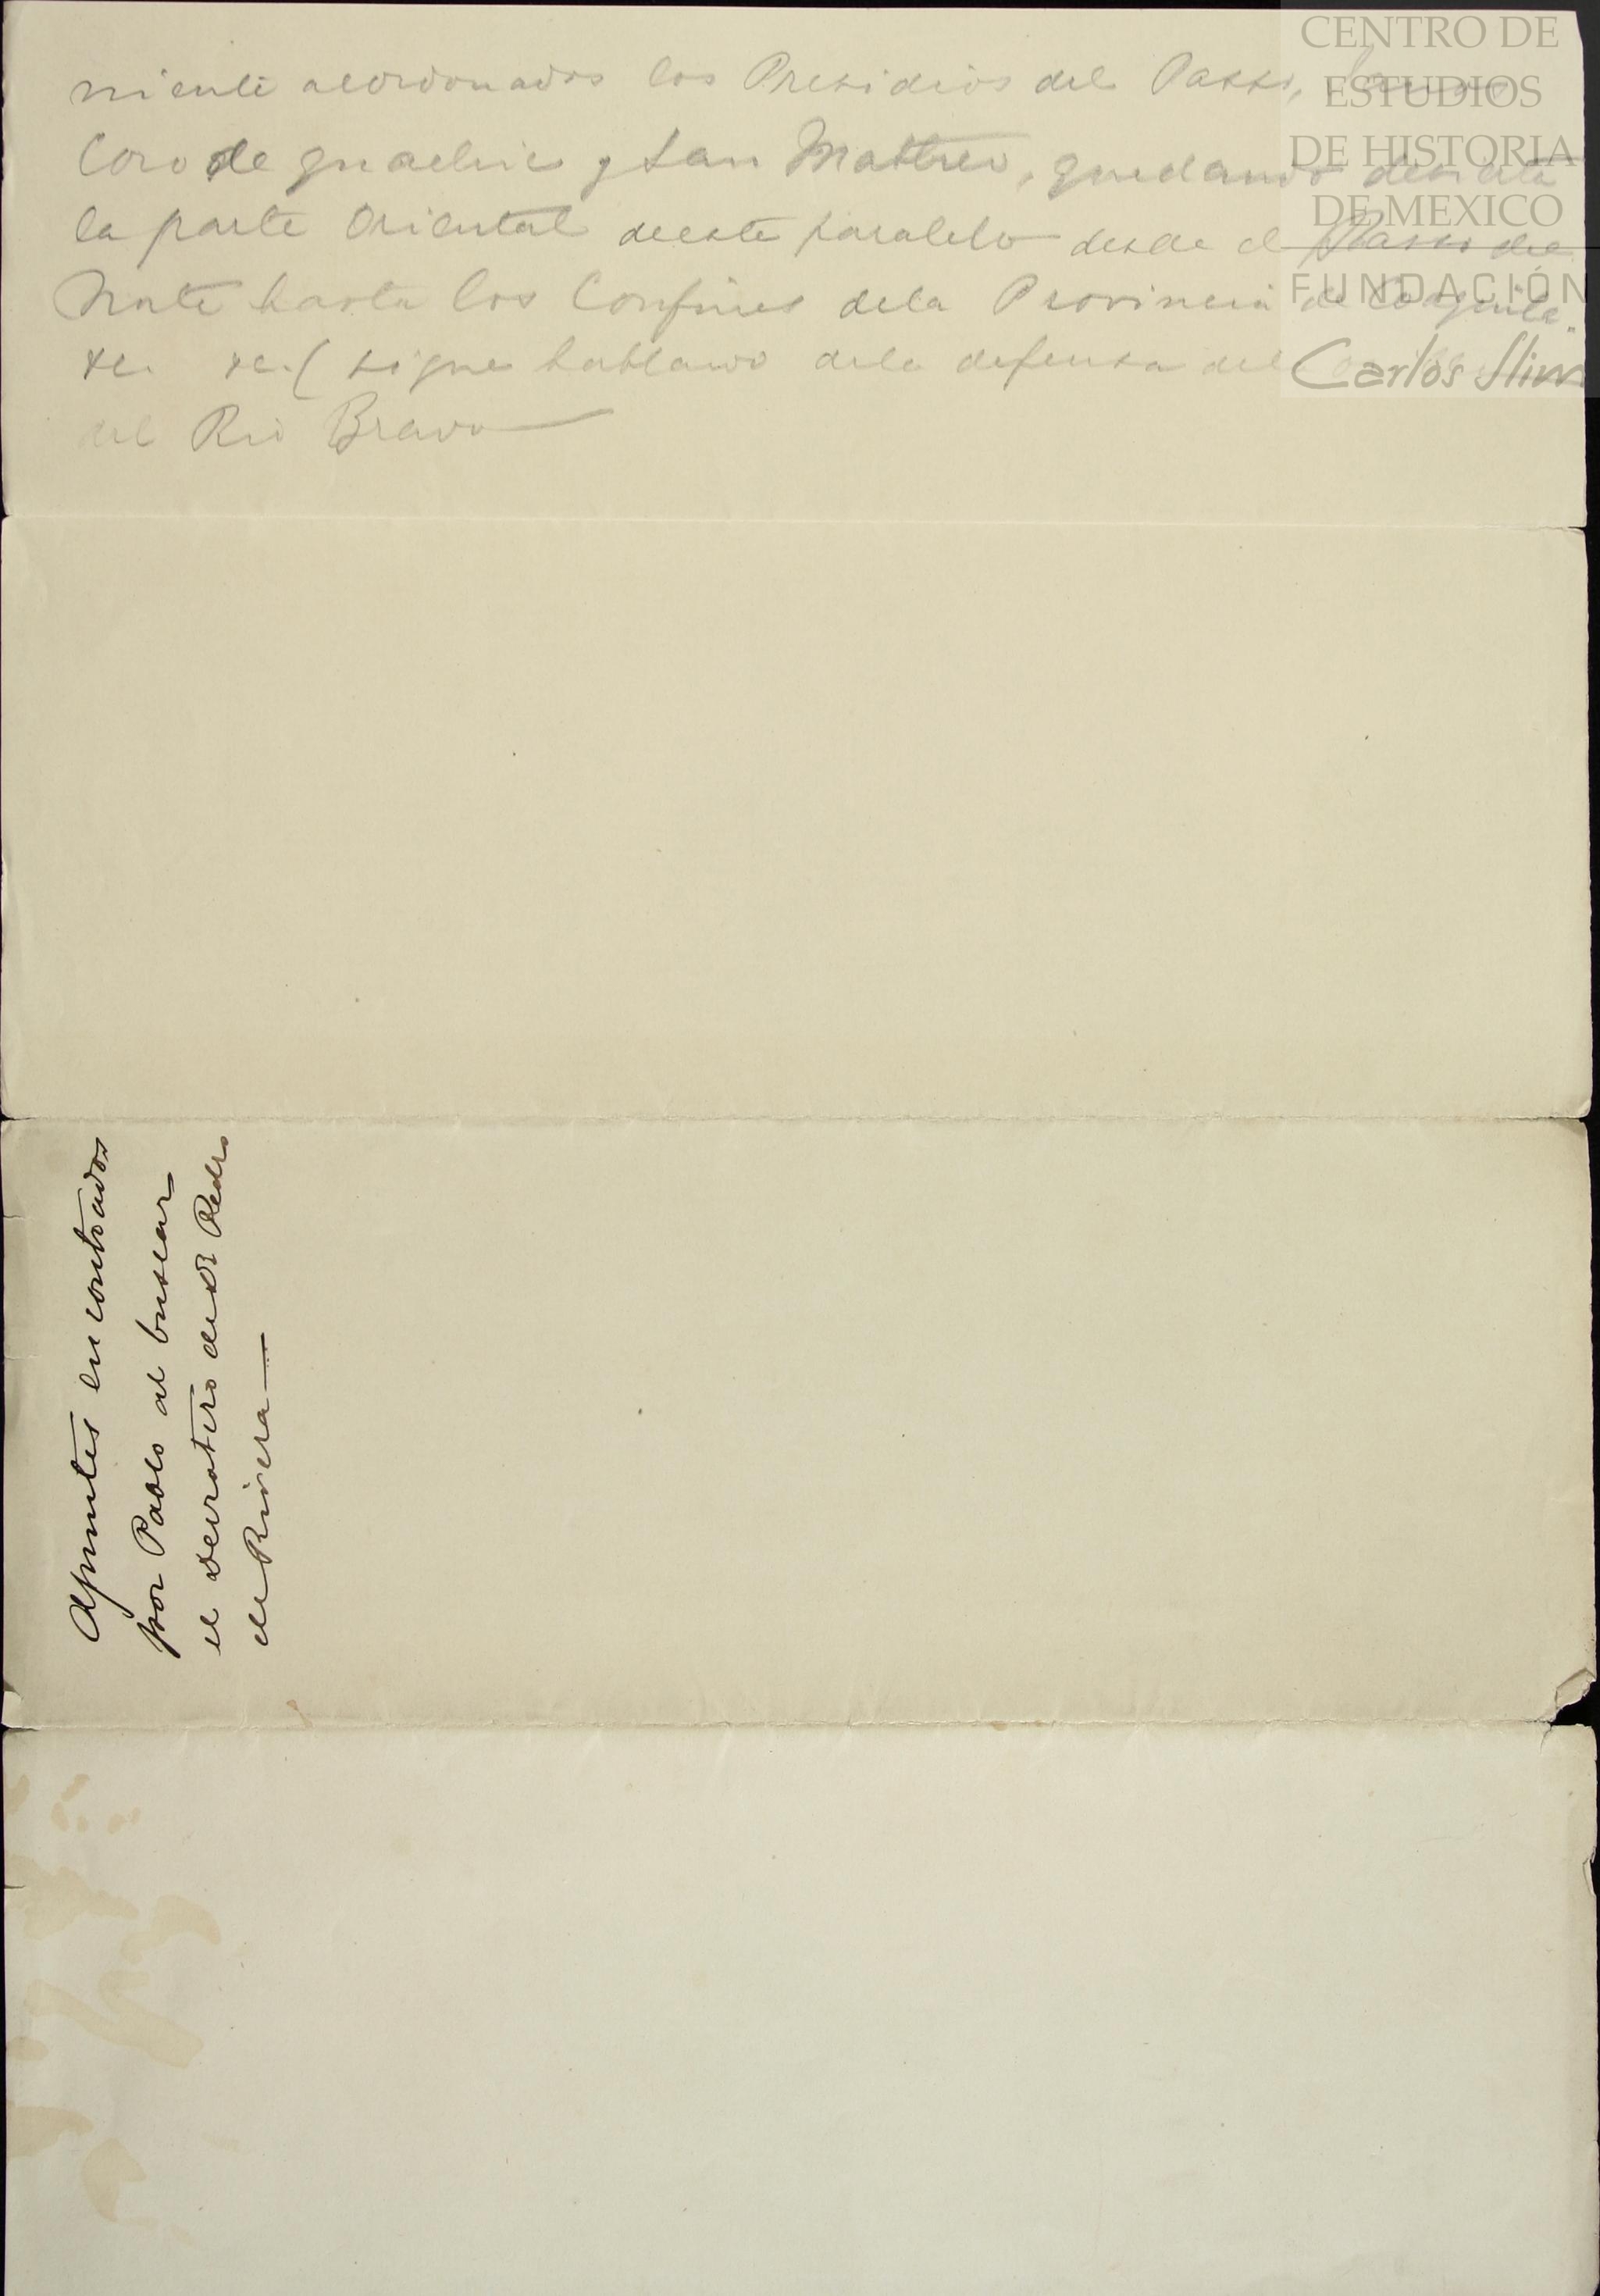 miente acordonados los Presidios del Passo, Janos
Coro de guachic y San Matheo, quedando desierta
la parte Oriental deeste paralelo desde el Passo del
Norte hasta los Confines dela Provincia de Coaguila"
&c. &c. ( sigue hablando dela defensa del
del Rio Bravo
Apuntes encontrados
por Pablo al buscar
el derrotero de Dn Pedro
de Rivera
CENTRO DE
ESTUDIOS
DE HISTORIA
DE MEXICO
FUNDACIÓN
Carlos Slim